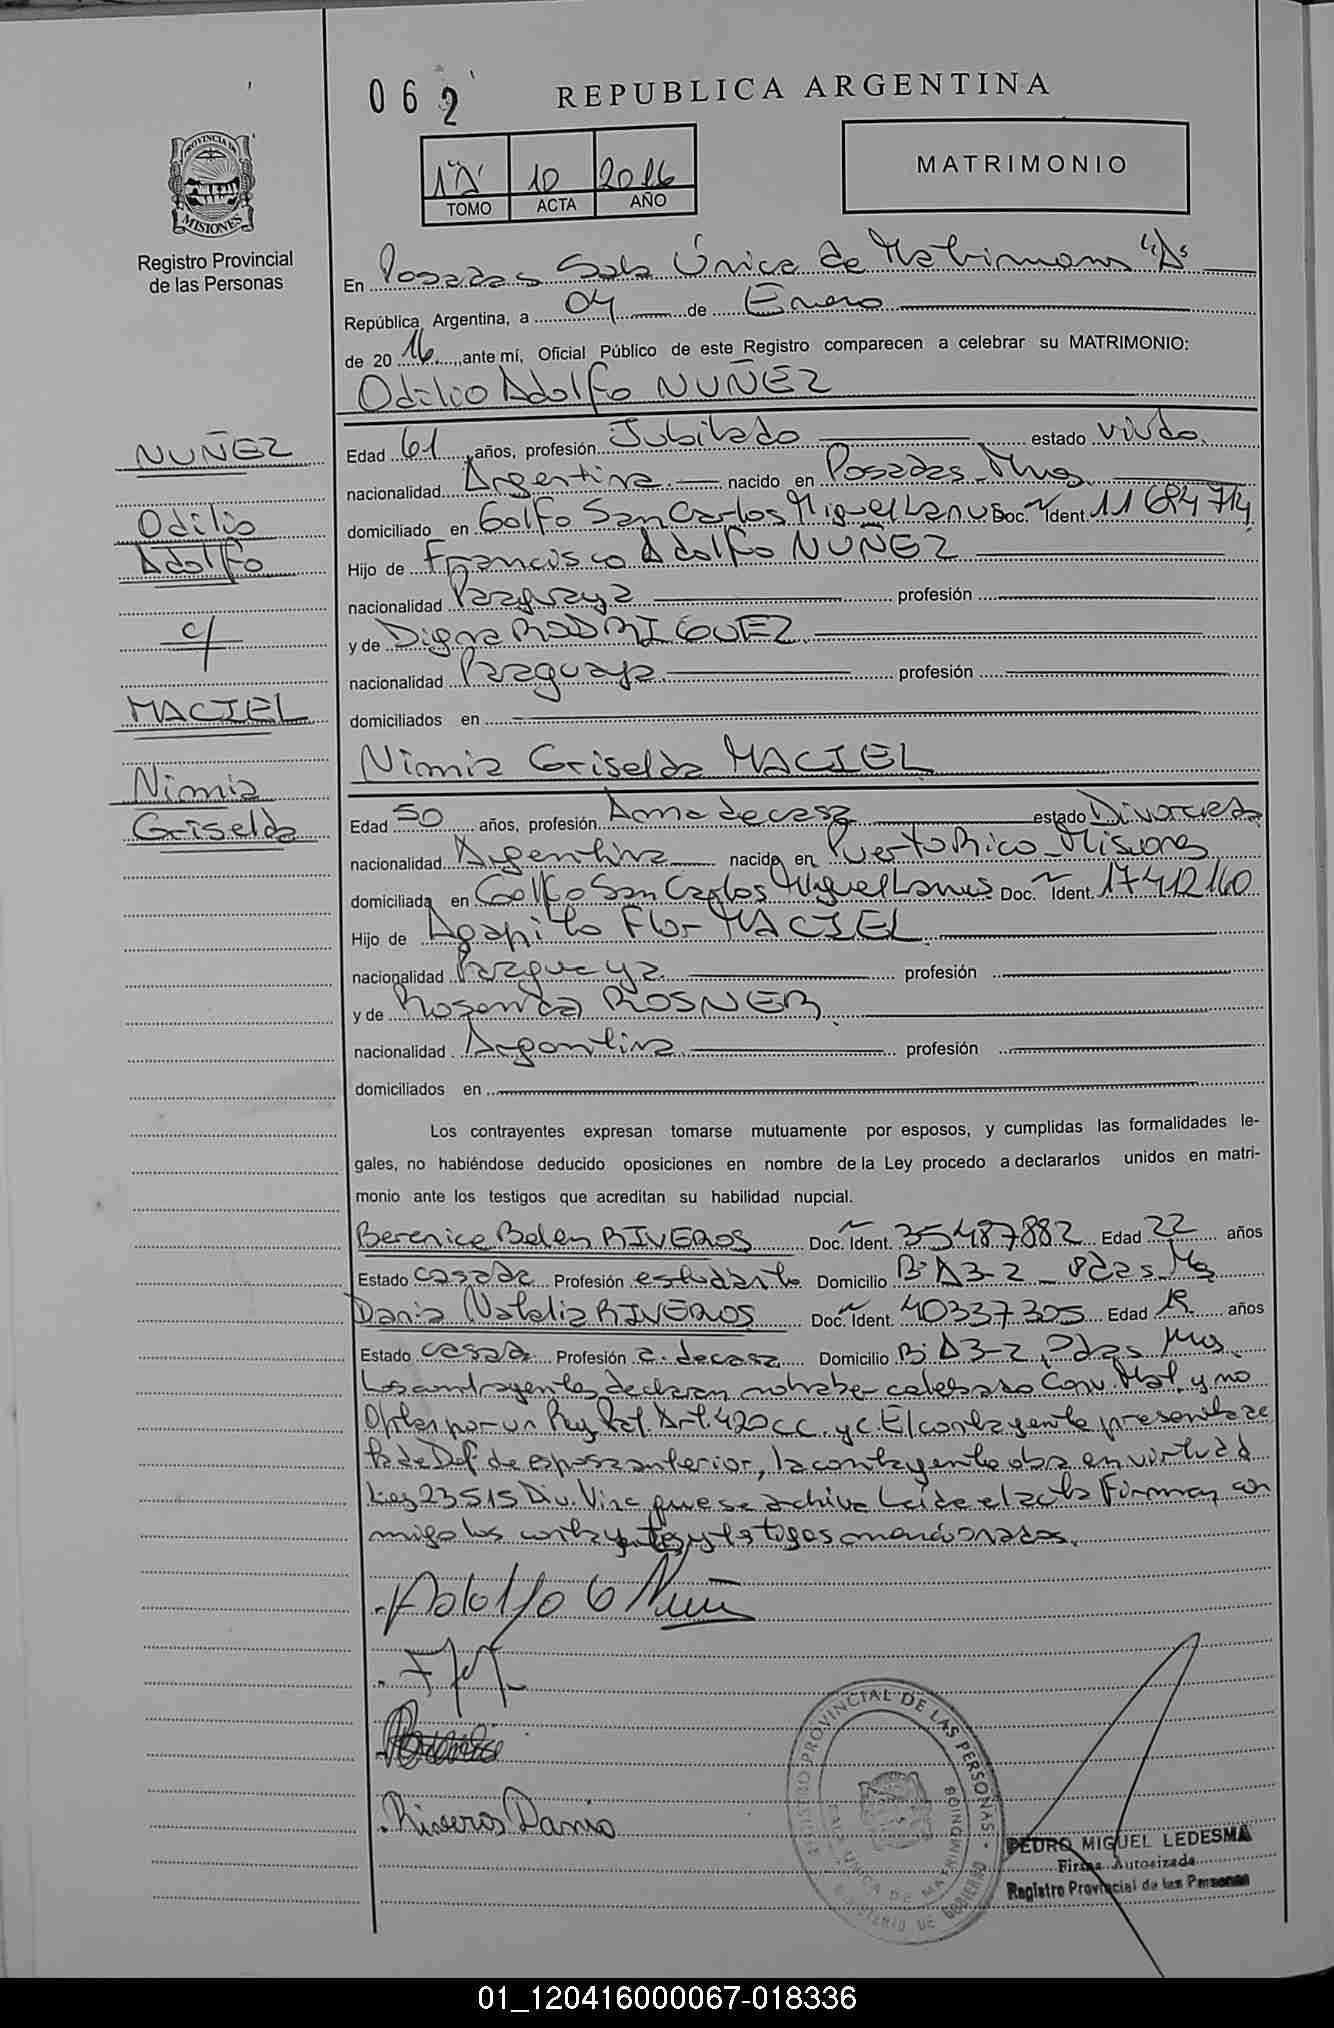 062
REPUBLICA ARGENTINA
PROVINCIA DE
MISIONES
Registro Provincial
de las Personas
1"A" 10 2016
TOMO ACTA AÑO
MATRIMONIO
En Posadas Sala Única de Matrimonios "A"
República Argentina, a 04 de Enero
de 2016, ante mí, Oficial Público de este Registro comparecen a celebrar su MATRIMONIO:
Odilio Adolfo NUÑEZ
NUÑEZ
Odilio
Adolfo
c/
MACIEL
Nimia
Griselda
Edad 61 años, profesión Jubilado estado viudo.
nacionalidad Argentina nacido en Posadas Mnes
domiciliado en Golfo San Carlos Miguel Lanus Doc. Ident. 11 684 714
Hijo de Francisco Adolfo NUÑEZ
nacionalidad Paraguaya profesión
y de Digna RODRIGUEZ
nacionalidad Paraguaya profesión
domiciliados en
Nimia Griselda MACIEL
Edad 50 años, profesión Ama de casa estado Divorciada
nacionalidad Argentina nacida en Puerto Rico Misiones
domiciliada en Golfo San Carlos Miguel Lanus Doc. Ident. 17412160
Hijo de Agapito Flor MACIEL
nacionalidad Paraguaya profesión
y de Rosenda ROSNER
nacionalidad Argentina profesión
domiciliados en
Los contrayentes expresan tomarse mutuamente por esposos, y cumplidas las formalidades le-
gales, no habiéndose deducido oposiciones en nombre de la Ley procedo a declararlos unidos en matri-
monio ante los testigos que acreditan su habilidad nupcial.
Berenice Belen RIVEROS Doc. Ident. 35487882 Edad 22 años
Estado casada Profesión estudiante Domicilio B: A3-2 Pdas Ms
Dania Natalia RIVEROS Doc. Ident. 40337305 Edad 19 años
Estado casada Profesión a. de casa Domicilio B: A3-2 Pdas Mns.
Los contrayentes declaran no haber celebrado Conv. Mat. y no
Optar por un Reg Pat. Art. 420 CC. y C. El contrayente presenta ac
ta de Def. de esposa anterior, la contrayente obra en virtud
Ley 23515 Div. Vinc que se archiva Leida el acta Firman con
migo los contrayentes y testigos mencionados.
Adolfo O Nuñ
Riveros Dania
REGISTRO PROVINCIAL DE LAS PERSONAS
SALA UNICA DE MATRIMONIOS
MINISTERIO DE GOBIERNO
PEDRO MIGUEL LEDESMA
Firma Autorizada
Registro Provincial de las Personas
01_120416000067-018336